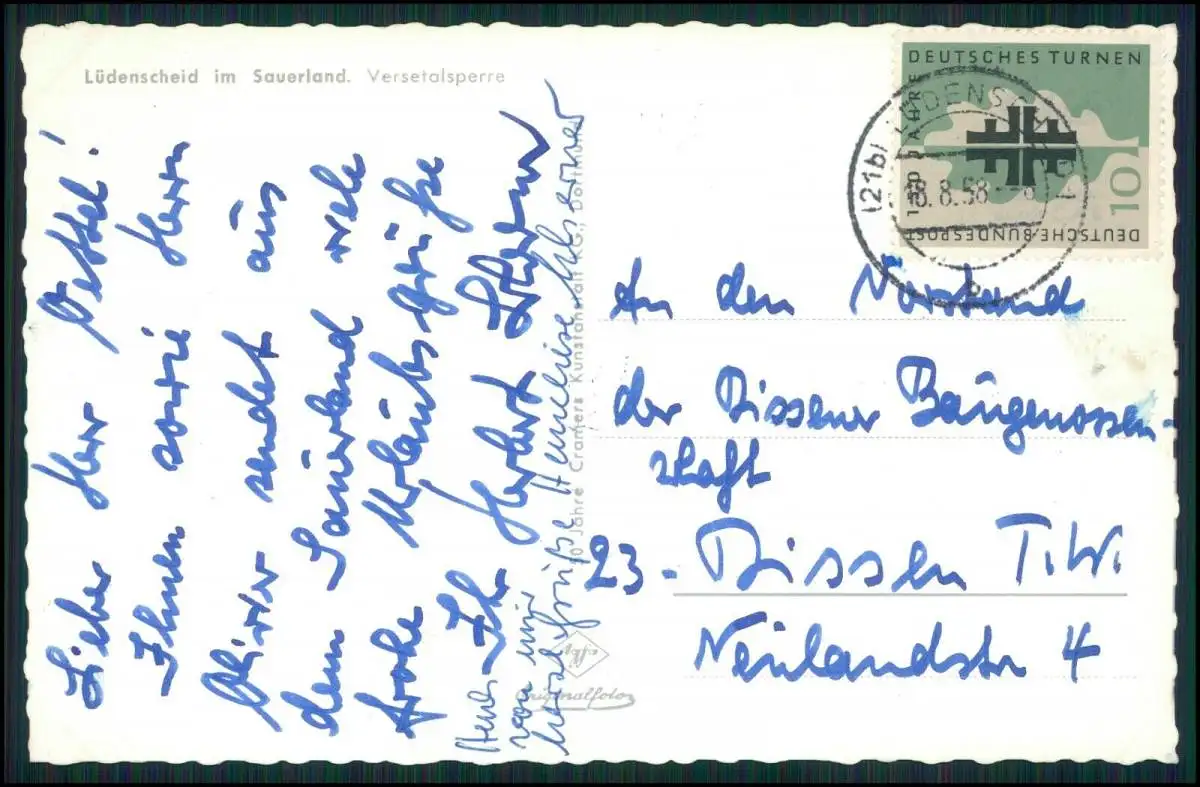 Lüdenscheid im Sauerland. Versetalsperre
Lieber Herr Vettel!
Ihnen sowie Herrn
sendet aus
dem Sauerland viele
frohe Urlaubsgrüße
Ihr Herbert
von mir
Grüße
10 Jahre Cramers Kunstanstalt KG., Dortmund
Agfa
Originalfoto
DEUTSCHES TURNEN
150 JAHRE
10
DEUTSCHE BUNDESPOST
(21b) LÜDENSCHEID
8.58
b
An den Vorstand
der Dissener Baugenossen-
schaft
23 - Dissen T.W.
Neulandstr 4